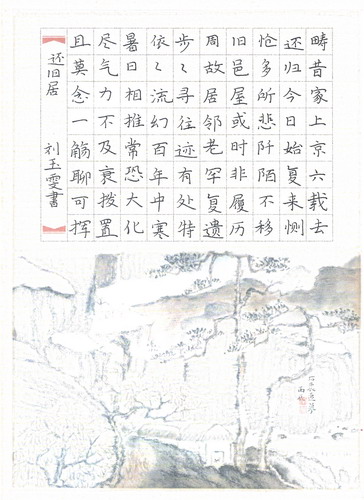 畴昔家上京六载去
还归今日始复来恻
怆多所悲阡陌不移
旧邑屋或时非履历
周故居邻老罕复遗
步々寻往迹有处特
依々流幻百年中寒
暑日相推常恐大化
尽气力不及衰拨置
且莫念一觞聊可挥
还旧居 刘玉雯書